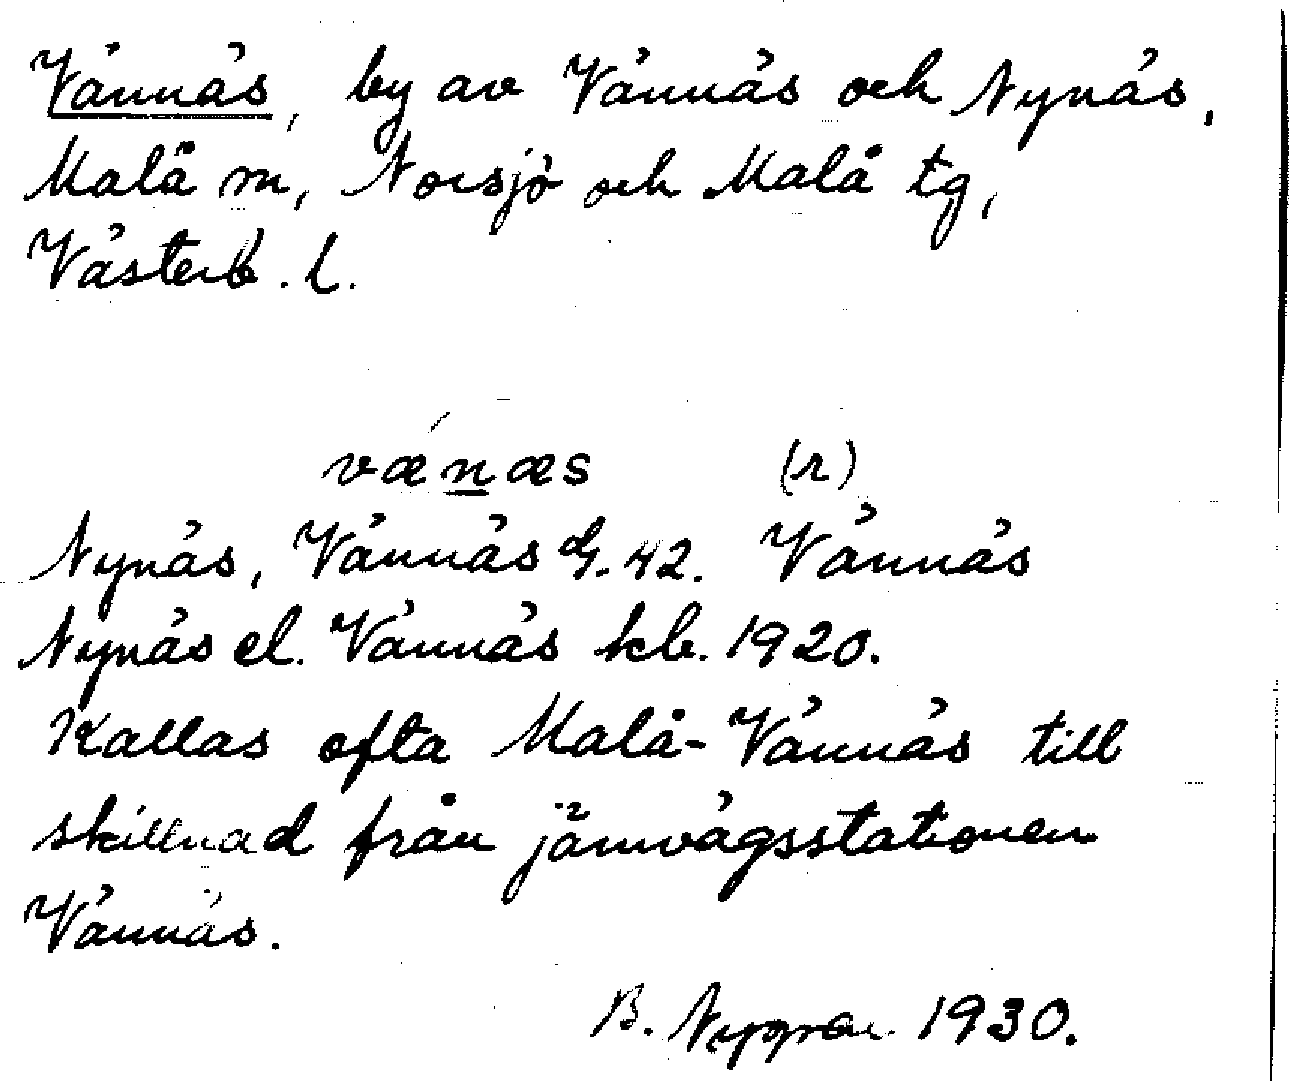 Vännäs, by av Vännäs och Nynäs,
Malå m, Norsjö och Malå tg,
Västerb. l.
vǽnæs (r)
Nynäs, Vännäs G. 42. Vännäs
Nynäs el. Vännäs kb. 1920.
Kallas ofta Malå-Vännäs till
skillnad från järnvägsstationen
Vännäs.
B. Nygren 1930.